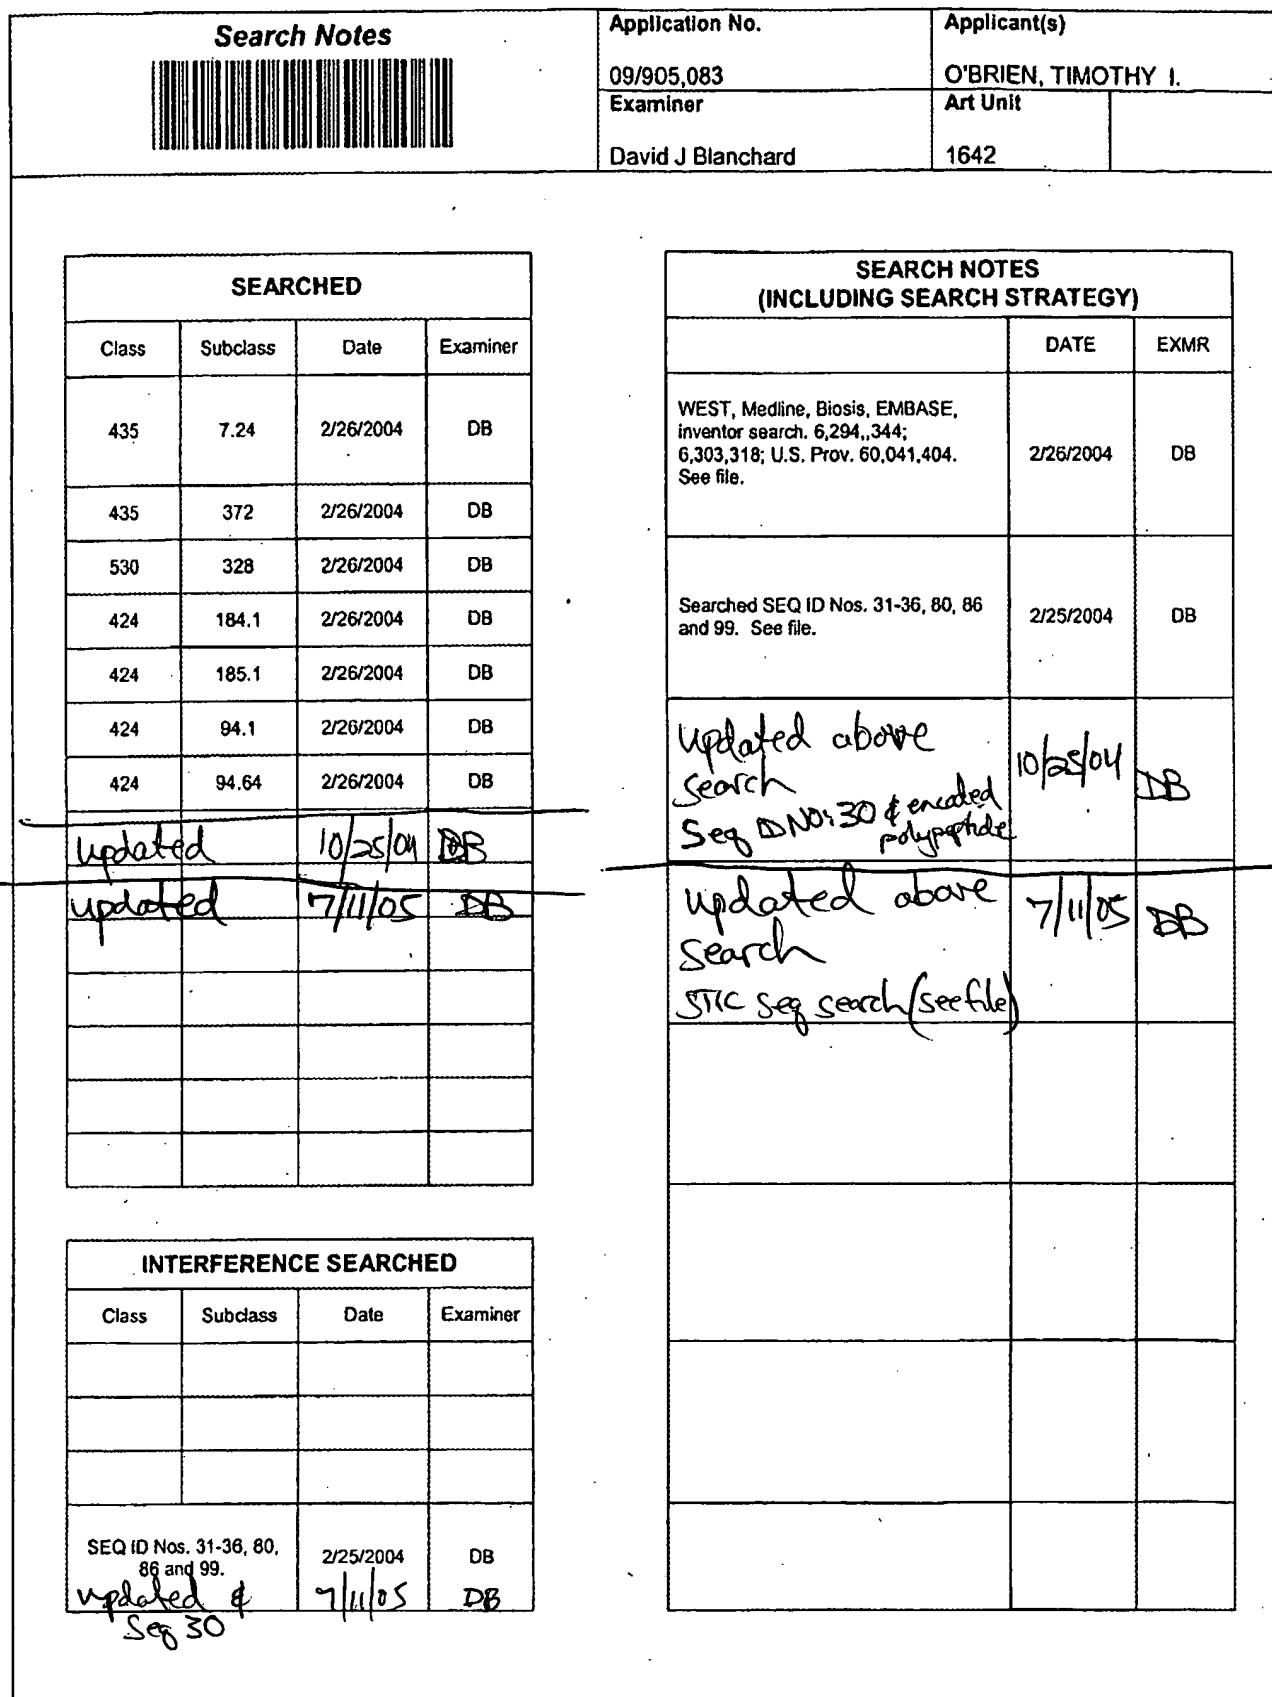 Search Notes
Application No.
09/905,083
Applicant(s)
O'BRIEN, TIMOTHY I.
Examiner
David J Blanchard
Art Unit
1642
SEARCHED
Class Subclass Date Examiner
435 7.24 2/26/2004 DB
435 372 2/26/2004 DB
530 328 2/26/2004 DB
424 184.1 2/26/2004 DB
424 185.1 2/26/2004 DB
424 94.1 2/26/2004 DB
424 94.64 2/26/2004 DB
updated 10/25/04 DB
updated 7/11/05 DB
INTERFERENCE SEARCHED
Class Subclass Date Examiner
SEQ ID Nos. 31-36, 80,
86 and 99. 2/25/2004 DB
updated & 7/11/05 DB
Seq 30
SEARCH NOTES
(INCLUDING SEARCH STRATEGY)
DATE EXMR
WEST, Medline, Biosis, EMBASE,
inventor search. 6,294,,344;
6,303,318; U.S. Prov. 60,041,404. 2/26/2004 DB
See file.
Searched SEQ ID Nos. 31-36, 80, 86 2/25/2004 DB
and 99. See file.
updated above
search 10/25/04 DB
Seq ID NO: 30 & encoded
polypeptide
updated above 7/11/05 DB
search
STIC Seq search (see file)